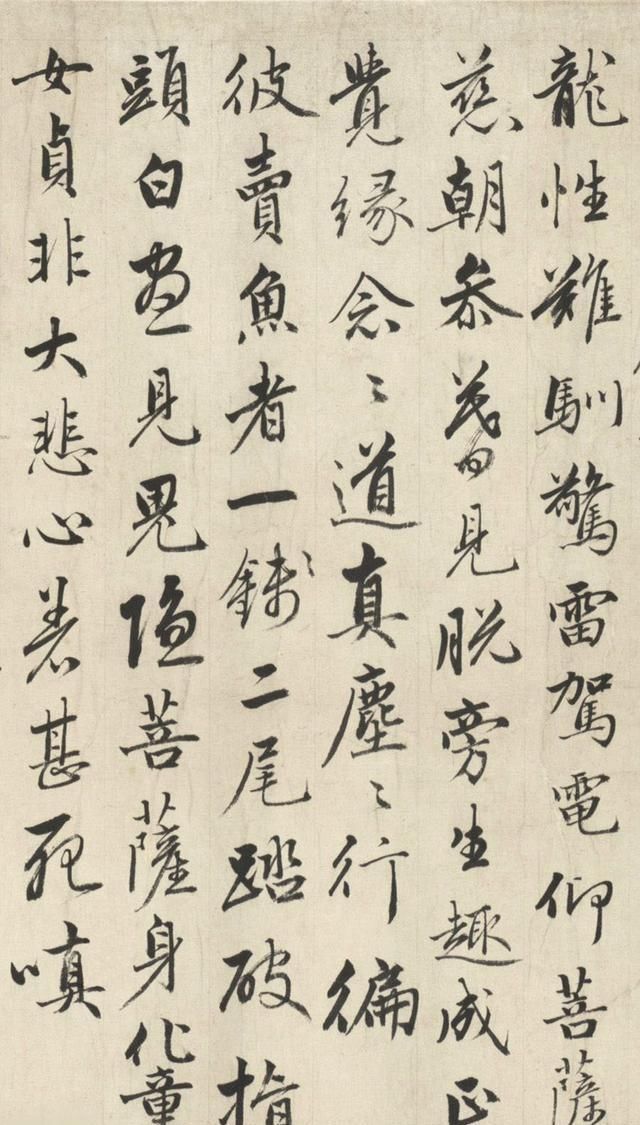 龍性難馴驚雷駕電仰菩薩
慈朝叅暮見脱旁生趣成正
覺縁念〻道真塵〻行徧
彼賣魚者一錢二尾踏破指
頭白晝見鬼隐菩薩身化童
女貞非大悲心着甚死嗔